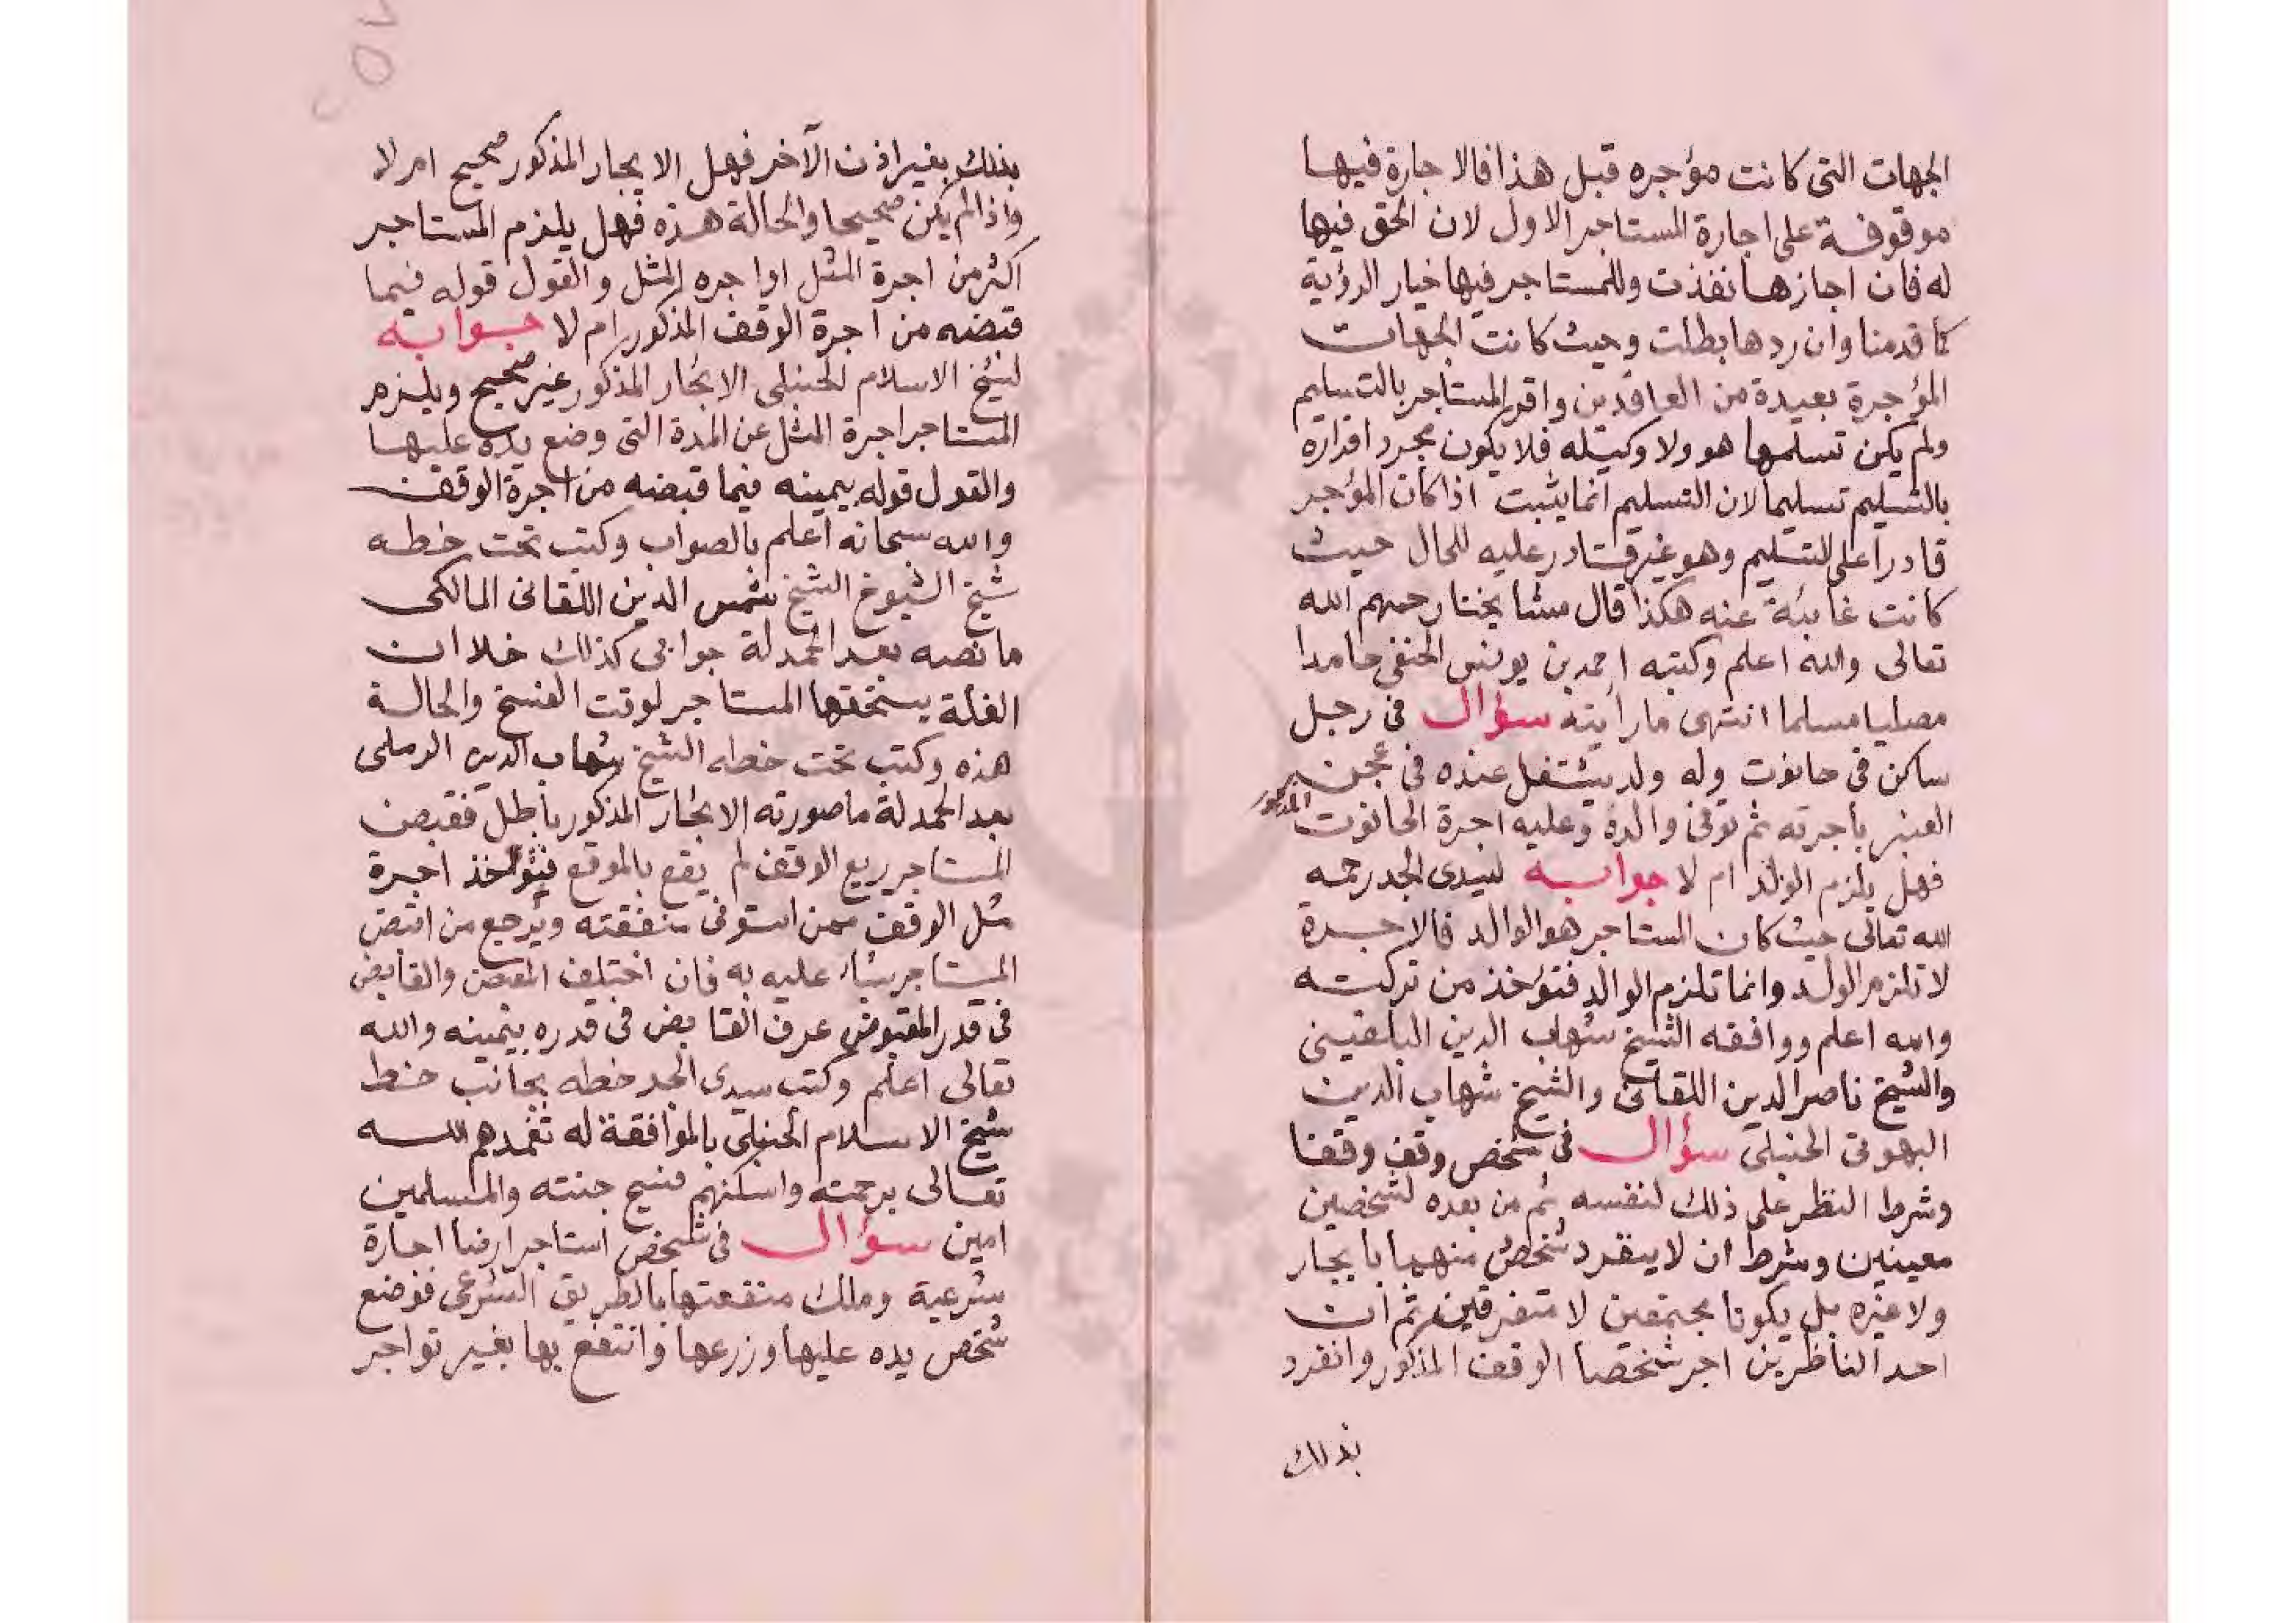 الجهات التى كانت مؤجره قبل هذا فالاجارة فيها
موقوفة على اجارة المستاجر الاول لان الحق فيها
له فان اجازها نفذت وللمستاجر فيها خيار الرؤية
كما قدمنا وان ردها بطلت وحيث كانت الجهات
المؤجرة بعيدة من العاقدين واقر المستاجر بالتسليم
ولم يكن تسلمها هو ولا وكيله فلا يكون مجرد اقراره
بالتسليم تسليما لان التسليم انما يثبت اذا كان المؤجر
قادرا على التسليم وهو غير قادر عليه للحال حيث
كانت غائبة عنه هكذا قال مشايخنا رحمهم الله
تعالى والله اعلم وكتبه احمد بن يونس الحنفى حامدا
مصليا مسلما انتهى ما رايته سؤال فى رجل
ساكن فى حانوت وله ولد يشتغل عنده فى عجن
العنبر باجرته ثم توفى والده وعليه اجرة الحانوت المذكور
فهل يلزم الولد ام لا جوابه لسيدى الجد رحمه
الله تعالى حيث كان المستاجر هو الوالد فالاجرة
لا تلزم الولد وانما تلزم الوالد فتؤخذ من تركته
والله اعلم ووافقه الشيخ شهاب الدين البلقينى
والشيخ ناصر الدين اللقانى والشيخ شهاب الدين
البهوتى الحنبلى سؤال فى شخص وقف وقفا
وشرط النظر على ذلك لنفسه ثم من بعده لشخصين
معينين وشرط ان لا ينفرد شخص منهما بايجار
ولا غيره بل يكونا مجتمعين لا متفرقين ثم ان
احد الناظرين اجر شخصا الوقف المذكور وانفرد
بذلك
بذلك بغير اذن الآخر فهل الايجار المذكور صحيح ام لا
واذا لم يكن صحيحا والحالة هذه فهل يلزم المستاجر
اكثر من اجرة المثل او اجره المثل والقول قوله فيما
قبضه من اجرة الوقف المذكور ام لا جوابه
لشيخ الاسلام الحنبلى الايجار المذكور غير صحيح ويلزم
المستاجر اجرة المثل عن المدة التى وضع يده عليها
والقول قوله بيمينه فيما قبضه من اجرة الوقف
والله سبحانه اعلم بالصواب وكتب تحت خطه
شيخ الشيوخ الشيخ شمس الدين اللقانى المالكى
ما نصه بعد الحمدلة جوابى كذلك خلا ان
الغلة يستحقها المستاجر لوقت الفسخ والحالة
هذه وكتب تحت خطه الشيخ شهاب الدين الرملى
بعد الحمدلة ما صورته الايجار المذكور باطل فقبض
المستاجر ريع الوقف لم يقع بالموقع فتؤخذ اجرة
مثل الوقف ممن استوفى منفعته ويرجع من اقبض
المستاجر شيا عليه به فان اختلف المقبض والقابض
فى قدر المقبوض عرف القابض فى قدره بيمينه والله
تعالى اعلم وكتب سيدى الجد خطه بجانب خط
شيخ الاسلام الحنبلى بالموافقة له تغمدهم الله
تعالى برحمته واسكنهم فسيح جنته والمسلمين
امين سؤال فى شخص استاجر ارضا اجارة
شرعية وملك منفعتها بالطريق الشرعى فوضع
شخص يده عليها وزرعها وانتفع بها بغير تواجر